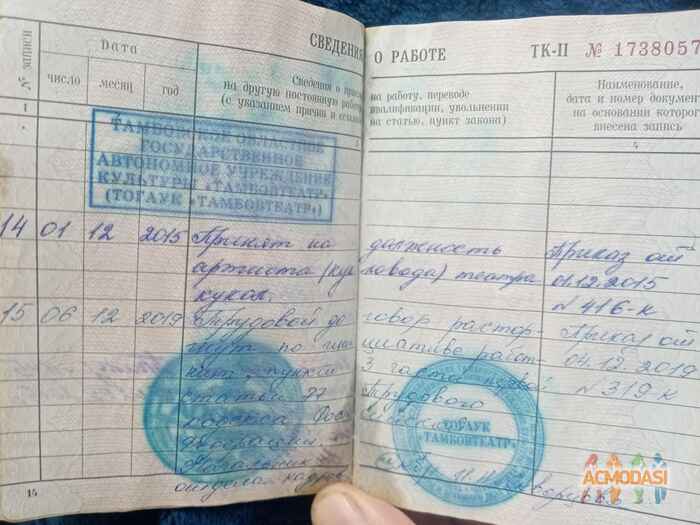 СВЕДЕНИЯ О РАБОТЕ ТК-II № 1738057
№ записи
Дата
число месяц год
Сведения о
на другую постоянную
(с указанием причин и
на работу, переводе
квалификации, увольнении
на статью, пункт закона)
Наименование,
дата и номер документ
на основании которог
внесена запись
1 3 4
ТАМБОВСКОЕ ОБЛАСТНОЕ
ГОСУДАРСТВЕННОЕ
АВТОНОМНОЕ УЧРЕЖДЕНИЕ
КУЛЬТУРЫ «ТАМБОВТЕАТР»
(ТОГАУК «ТАМБОВТЕАТР»)
14 01 12 2015 Принят на должность Приказ от
артиста (кукловода) театра 01.12.2015
кукол. N 416-к
15 06 12 2019 Трудовой договор растор- Приказ от
гнут по инициативе работ- 04.12.2019
пункт 3 части первой N 319 к
статьи 77 Трудового
Начальник
отдела кадров
ТОГАУК
«ТАМБОВТЕАТР»
14
ACMODASI